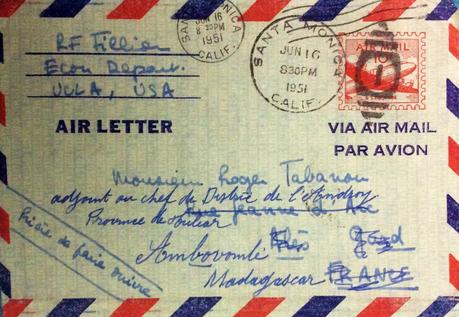 RF Fillion
Econ Depart.
UCLA, USA
SANTA MONICA
JUN 16
8 30PM
1951
CALIF.
SANTA MONICA
JUN 16
8 30 PM
1951
CALIF.
AIR MAIL
10¢
AIR LETTER
VIA AIR MAIL
PAR AVION
Monsieur Roger Tabanou
adjoint au chef de District de l'Androy
rue Jeanne d'Arc
Province de Tuléar
Alès Gard
Ambovombé
Madagascar FRANCE
Prière de faire suivre